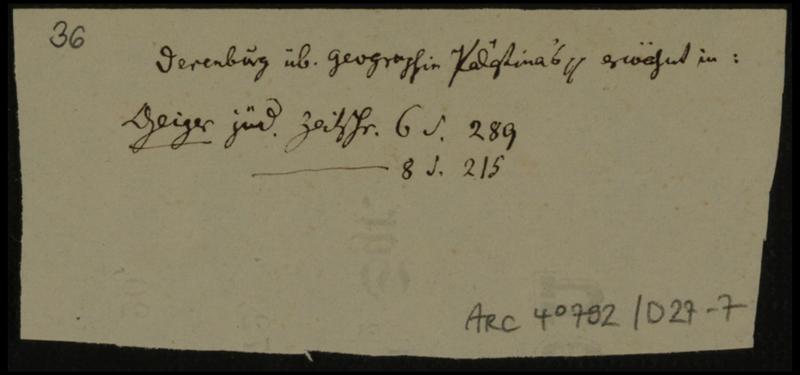 36
Derenburg üb. Geographie Palästina's erwähnt in:
Geiger jüd. Zeitschr. 6 S. 289
—— 8 S. 215
ARC 4° 792 / D27-7